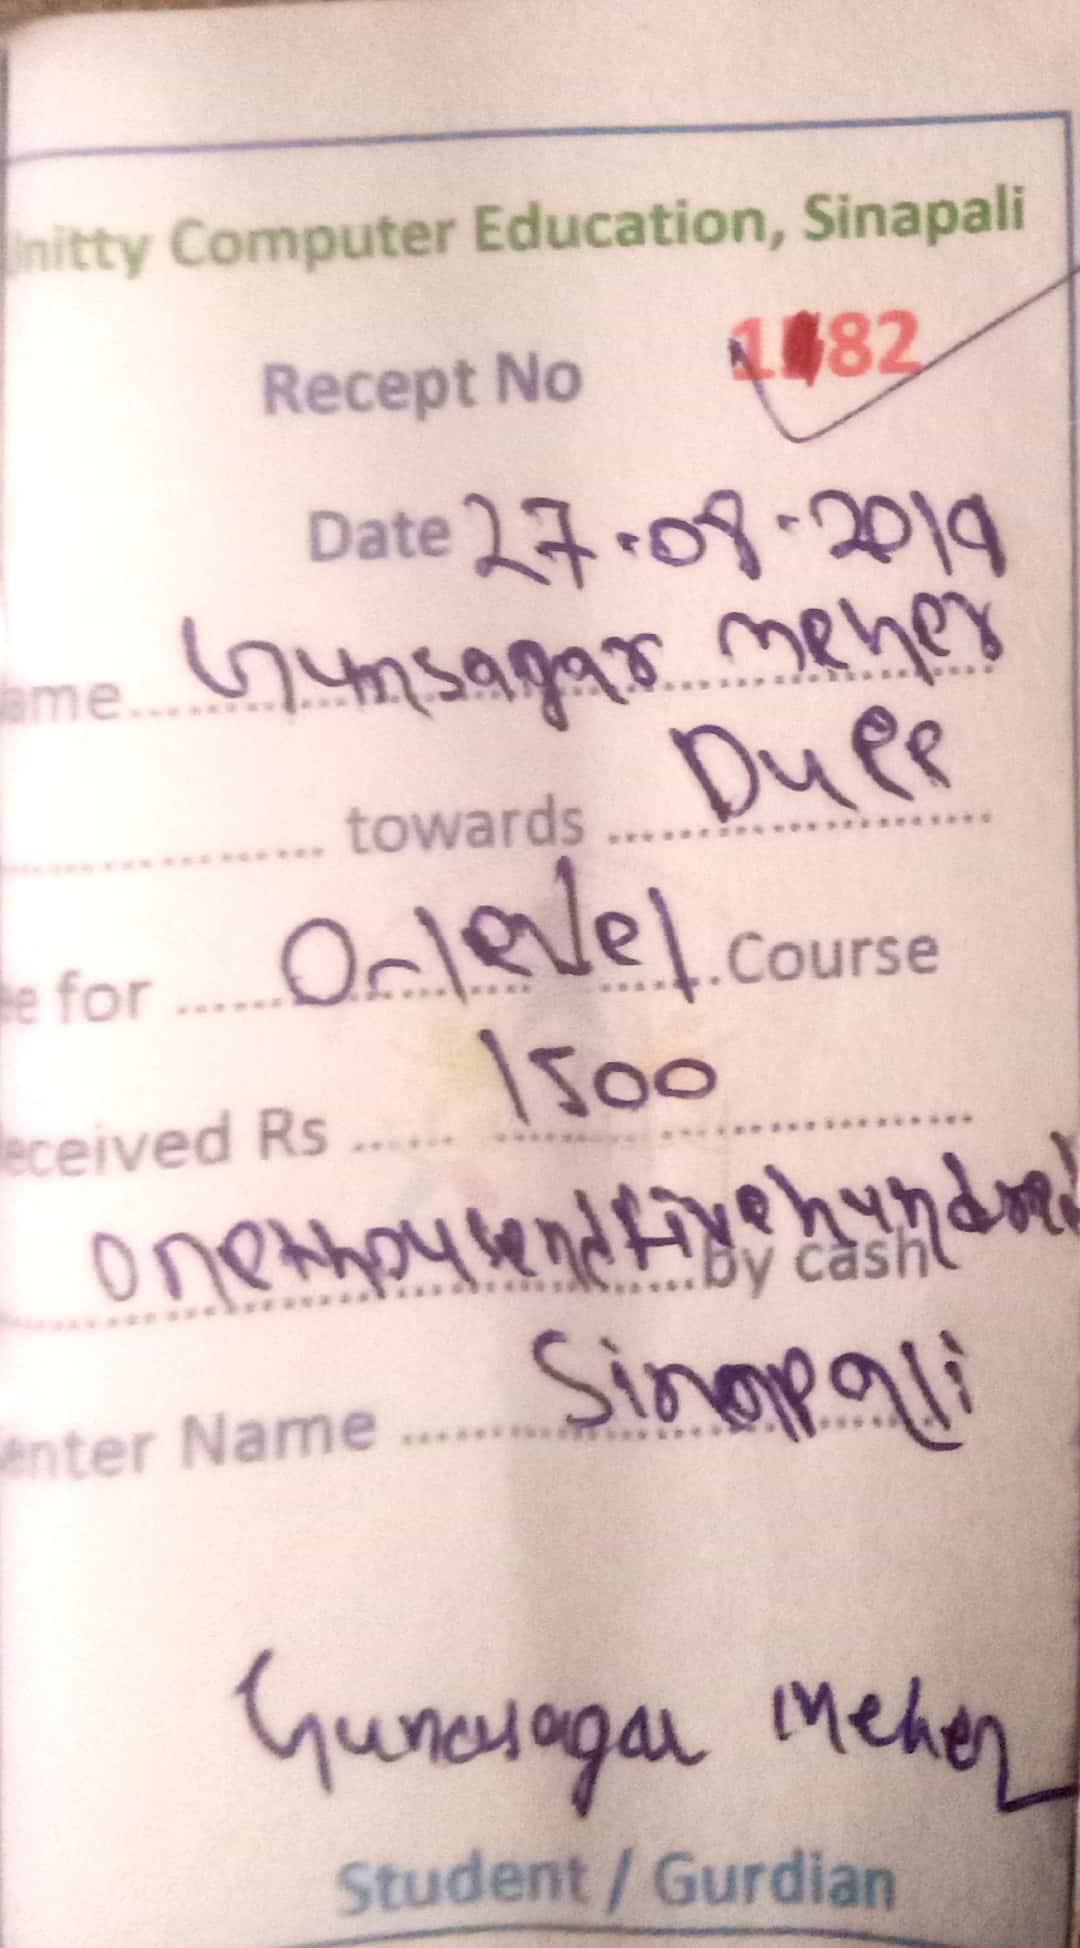 nitty Computer Education, Sinapali
Recept No 1 82
Date 27-08-2019
ame Gunsagar meher
towards Duee
e for O-level Course
eceived Rs 1500
Onethousendfivehundred by cash
enter Name Sinapali
Gunasagar Meher
Student / Gurdian